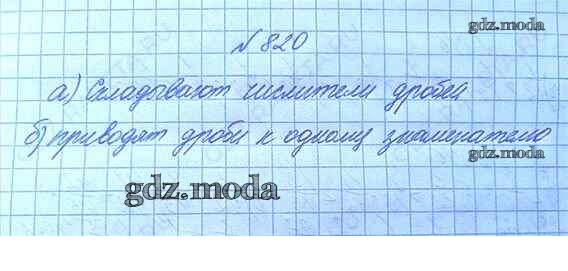 № 820
gdz.moda
а) Складывают числители дробей
б) приводят дроби к одному знаменателю
gdz.moda
gdz.moda